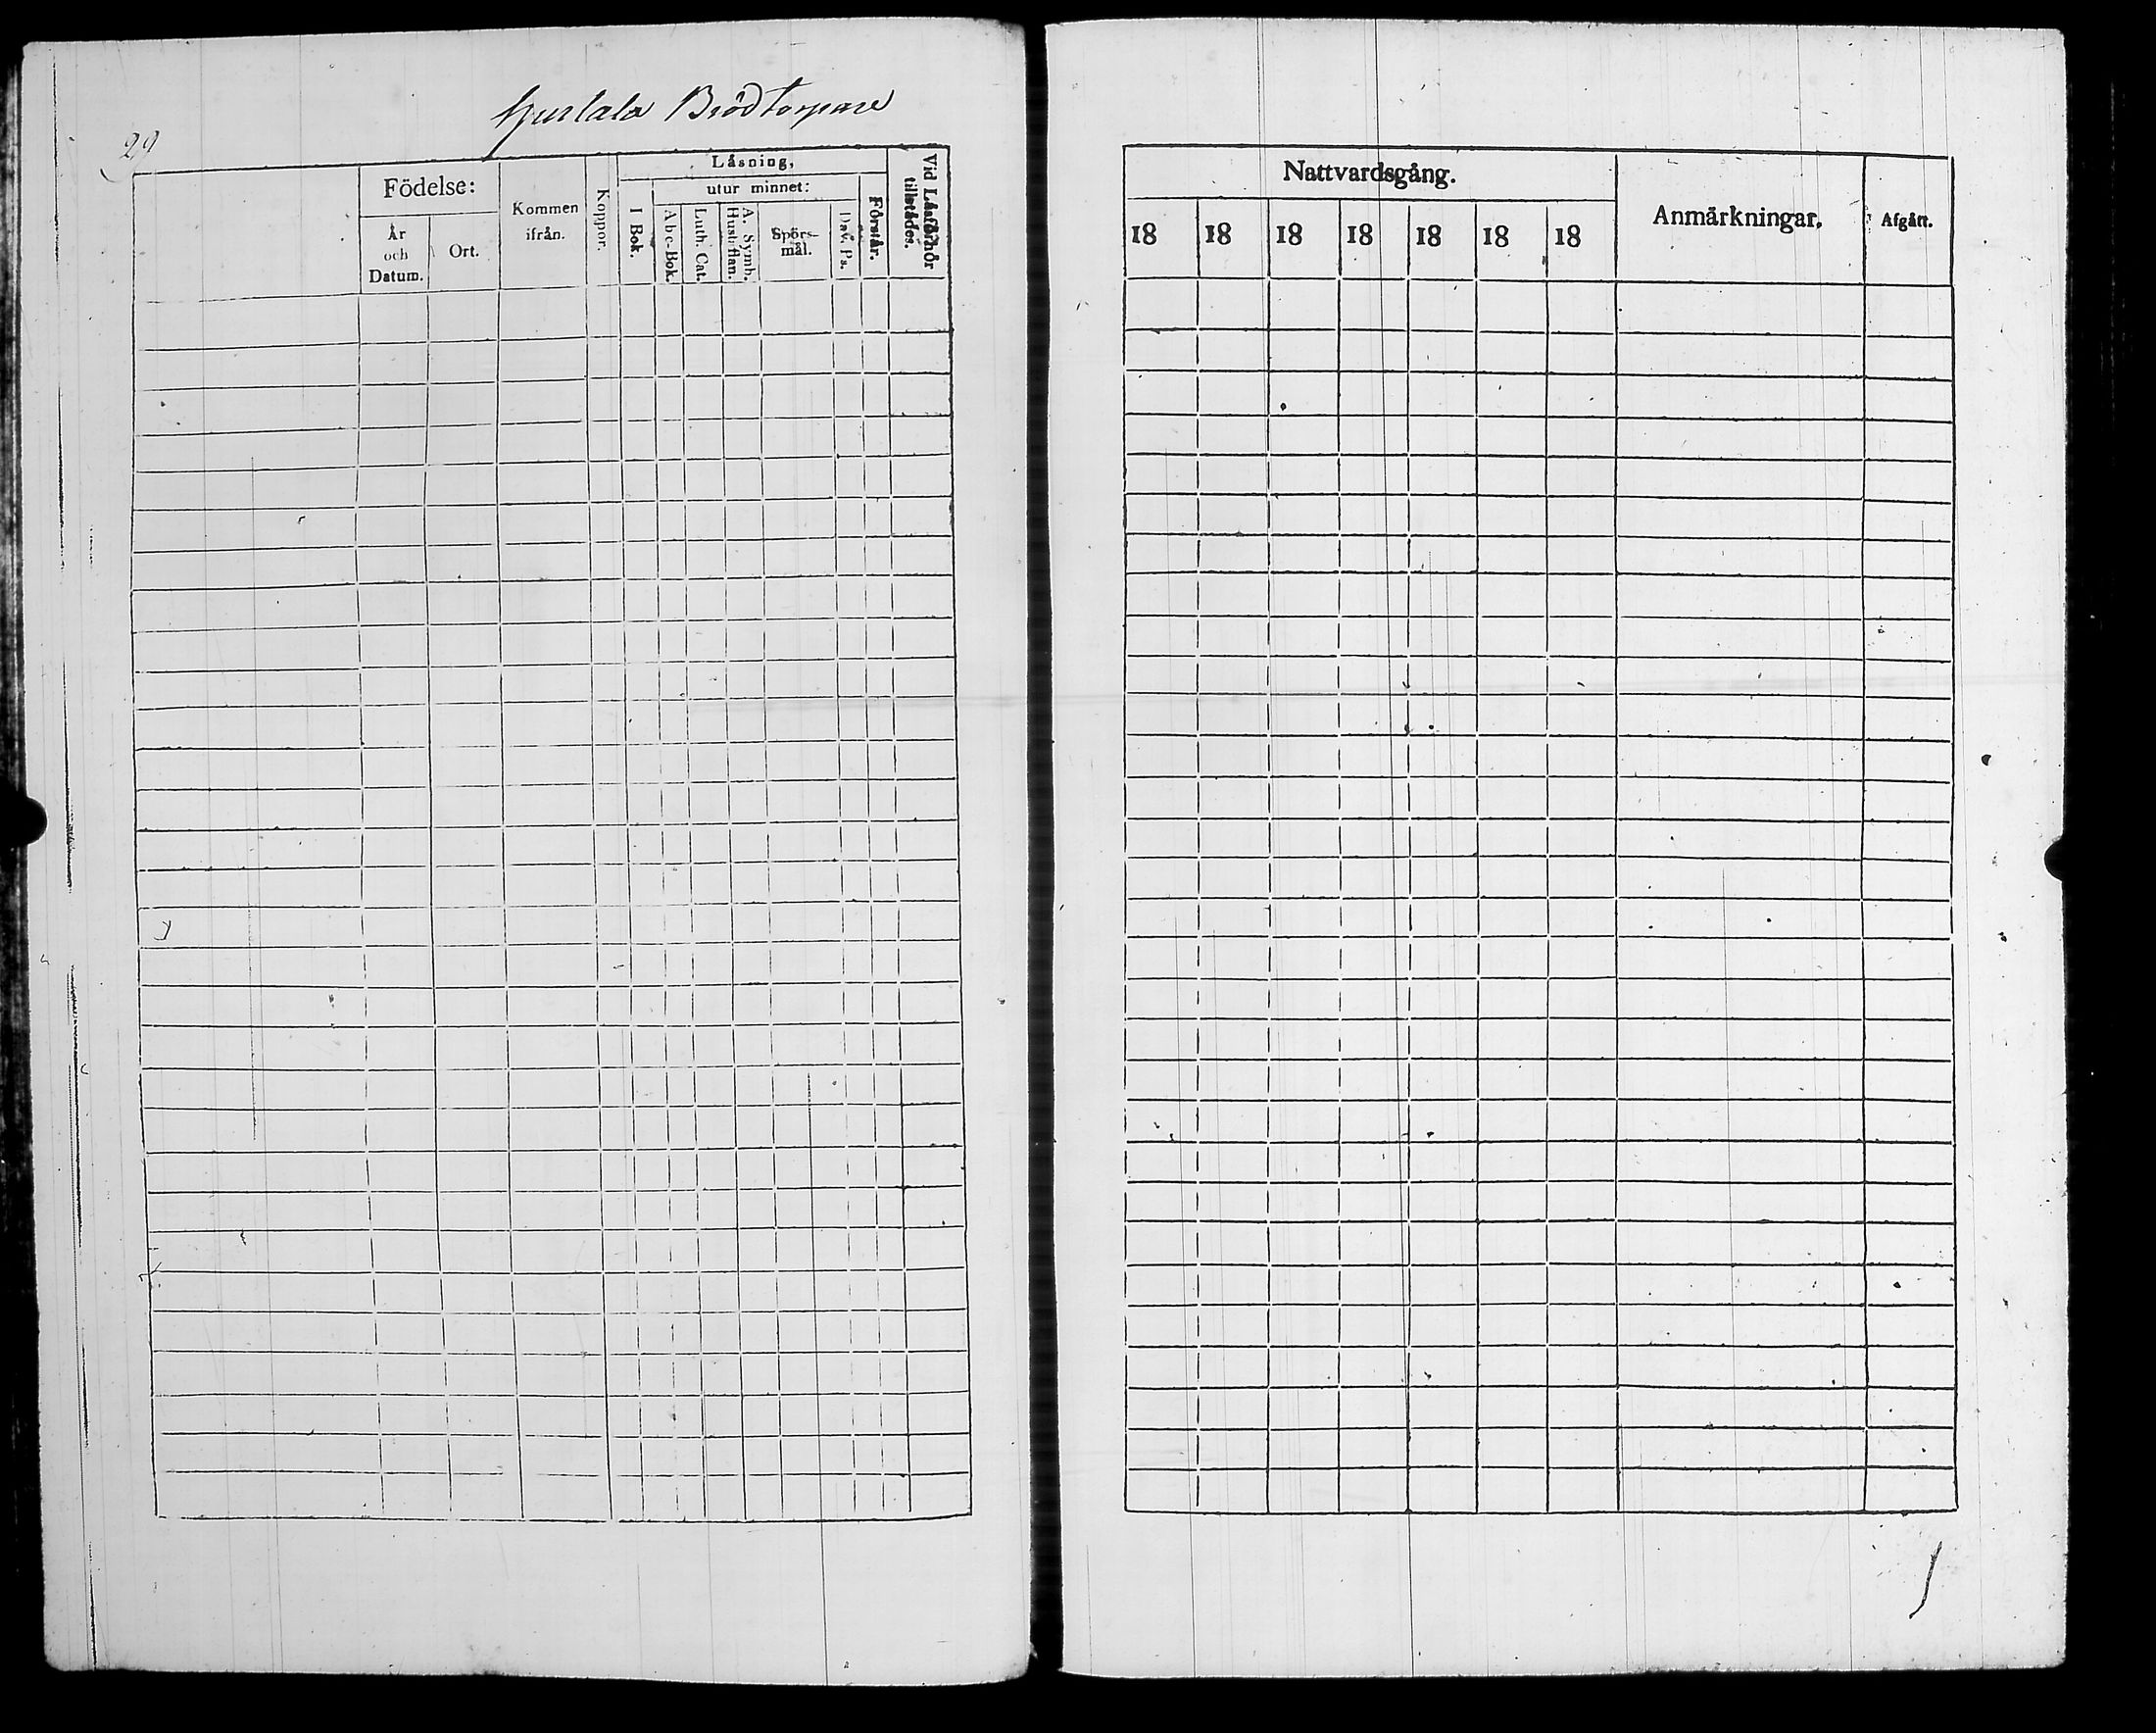 29
Brödtorpare
Födelse:
År
och
Datum.
Ort.
Kommen
ifrån.
Koppor.
Läsning,
I Bok.
utur minnet:
Abc-Bok.
Luth. Cat.
A. Symb.
Hust: flan.
Spörs-
mål.
Dav. Ps.
Förstår.
Vid Läsförhör
tillstådes.
Nattvardsgång.
18 18 18 18 18 18 18
Anmärkningar.
Afgått.